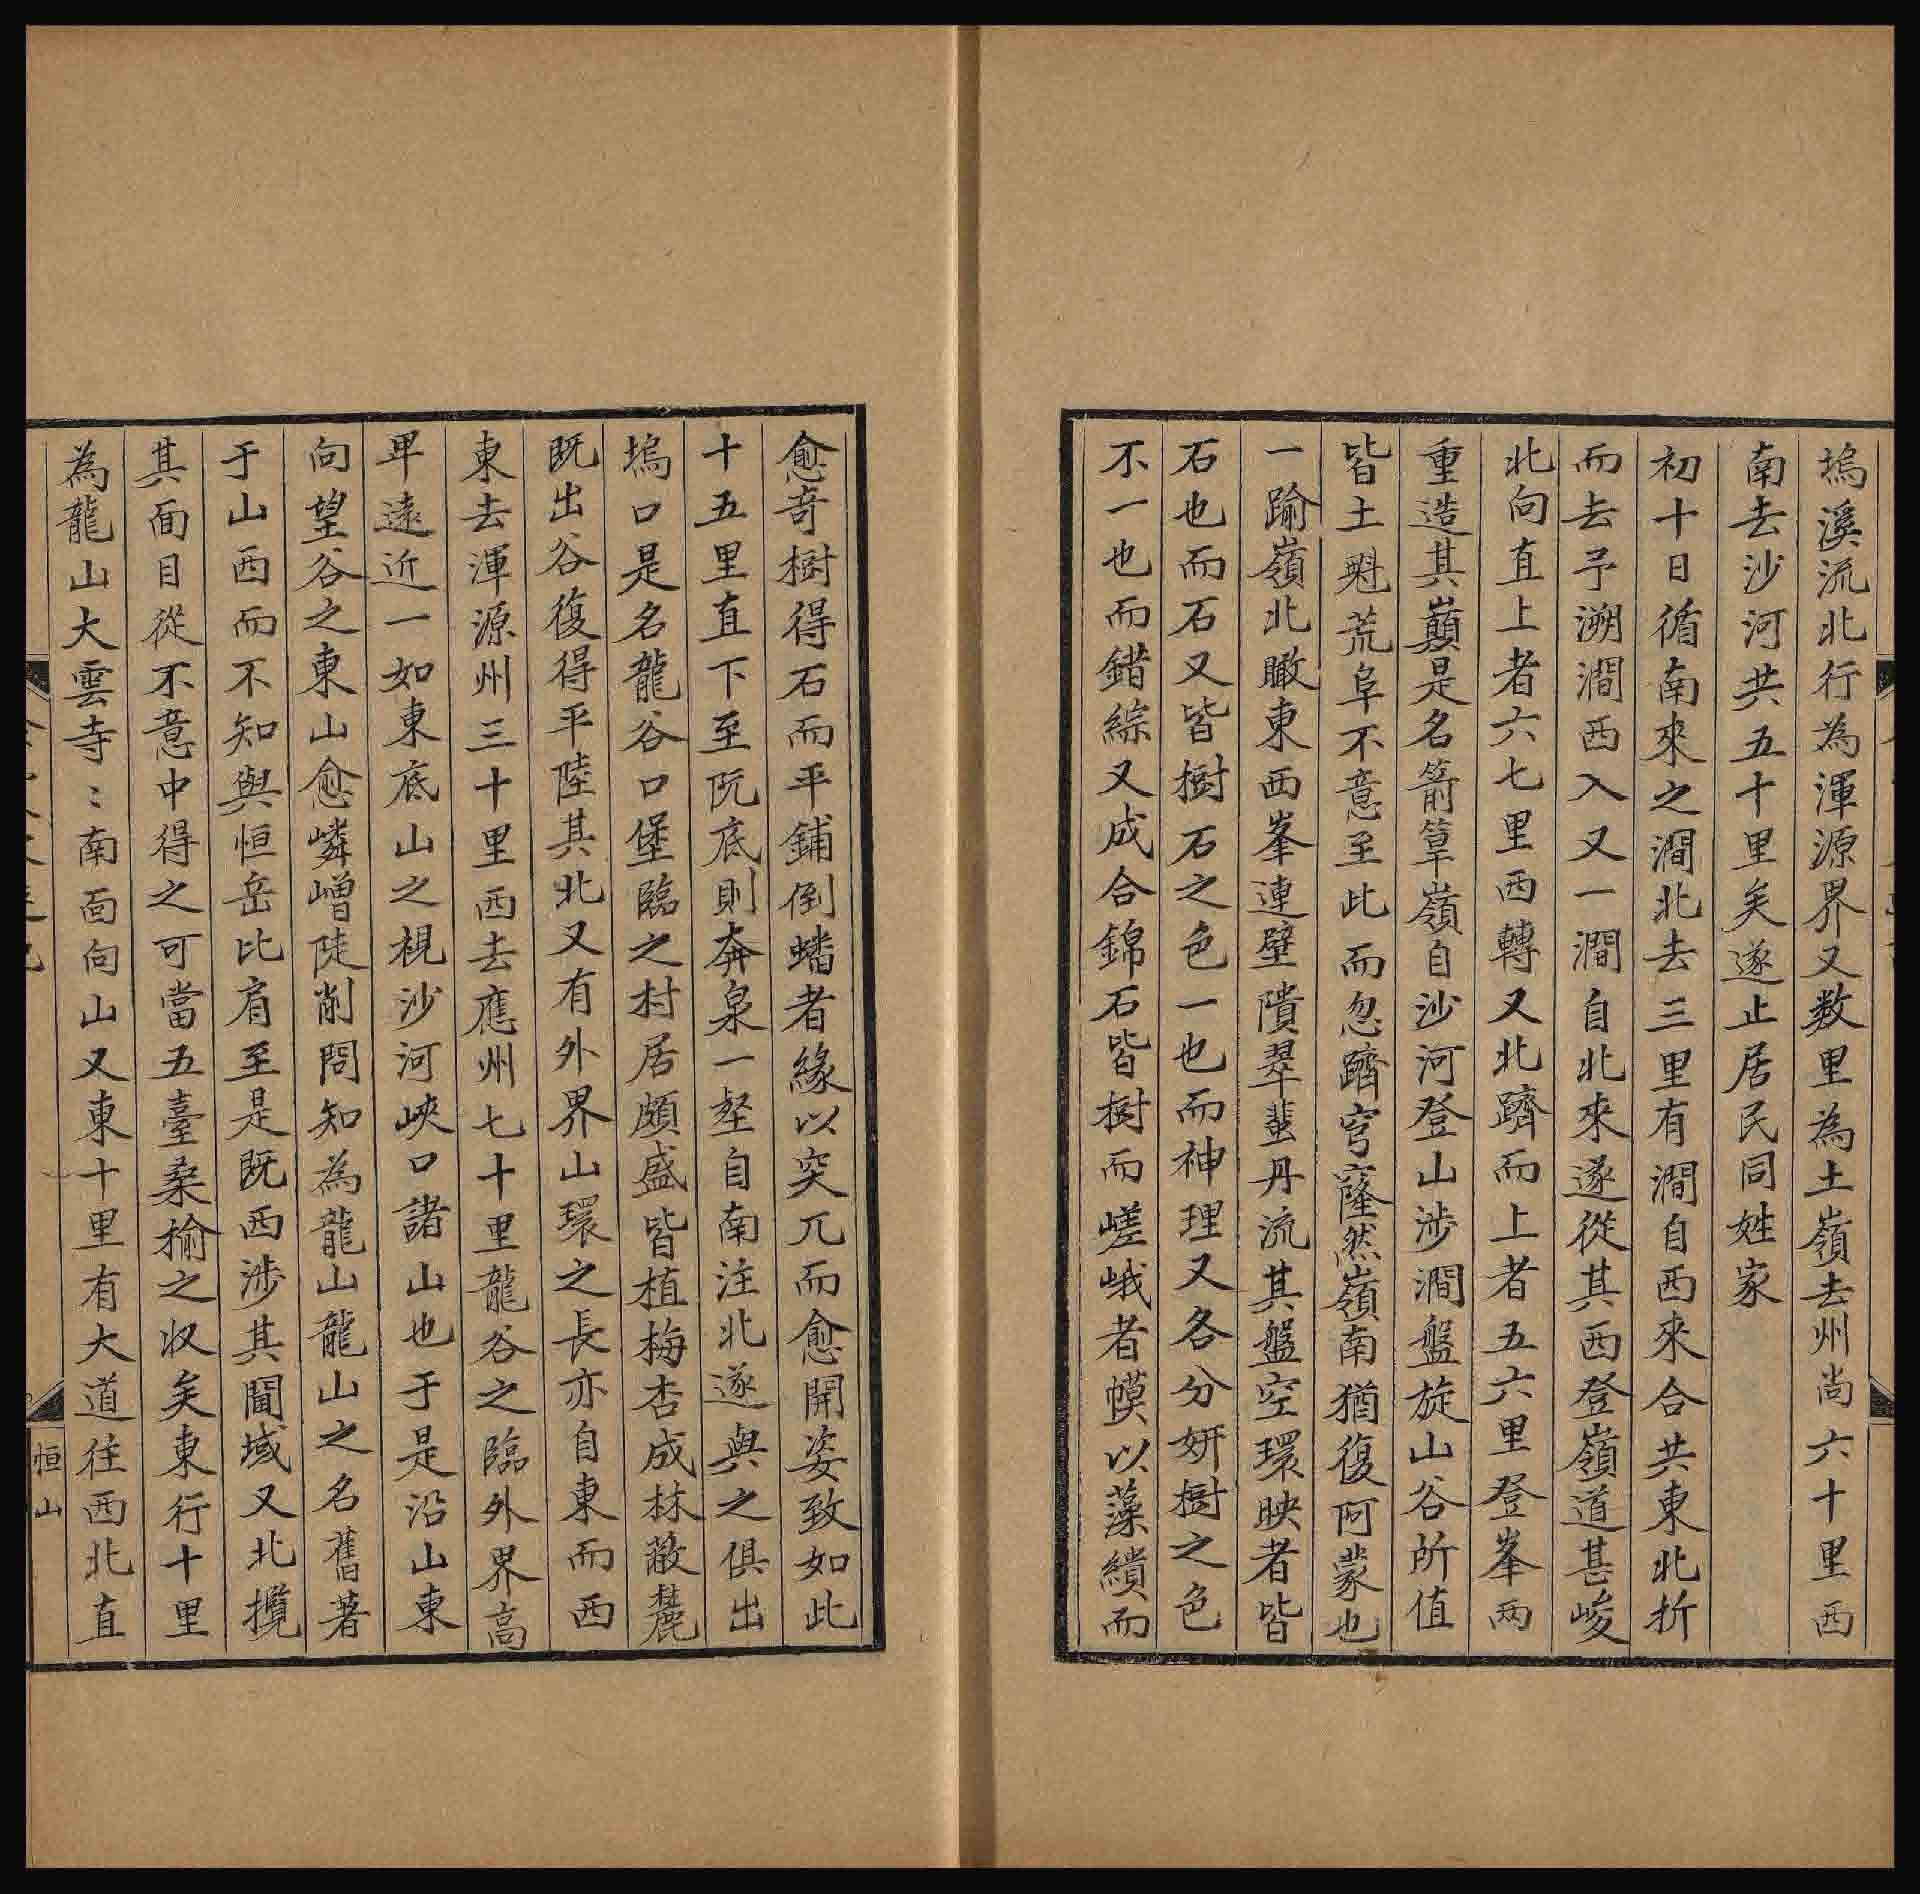 塢溪流北行為渾源界又数里為土嶺去州尚六十里西
南去沙河共五十里矣遂止居民同姓家
初十日循南來之澗北去三里有澗自西來合共東北折
而去予溯澗西入又一澗自北來遂從其西登嶺道甚峻
北向直上者六七里西轉又北躋而上者五六里登峯兩
重造其巔是名箭筸嶺自沙河登山涉澗盤旋山谷所值
皆土魁荒阜不意至此而忽躋穹窿然嶺南猶復阿蒙也
一踰嶺北瞰東西峯連壁隤翠蜚丹流其盤空環映者皆
石也而石又皆樹石之色一也而神理又各分妍樹之色
不一也而錯綜又成合錦石皆樹而嵯峨者幙以藻繢而
愈奇樹得石而平鋪倒蟠者緣以突兀而愈開姿致如此
十五里直下至阬底則奔泉一壑自南注北遂與之俱出
塢口是名龍谷口堡臨之村居頗盛皆植梅杏成林蔽麓
既出谷復得平陸其北又有外界山環之長亦自東而西
東去渾源州三十里西去應州七十里龍谷之臨外界高
卑遠近一如東底山之視沙河峽口諸山也于是沿山東
向望谷之東山愈嶙嶒陡削問知為龍山龍山之名舊著
于山西而不知與恒岳比肩至是既西涉其閫域又北攬
其面目從不意中得之可當五臺桑榆之収矣東行十里
為龍山大雲寺〻南面向山又東十里有大道往西北直
恒山